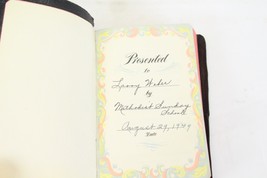 Presented
to
Weber
by
Methodist Sunday
School
August 29, 1949
Date